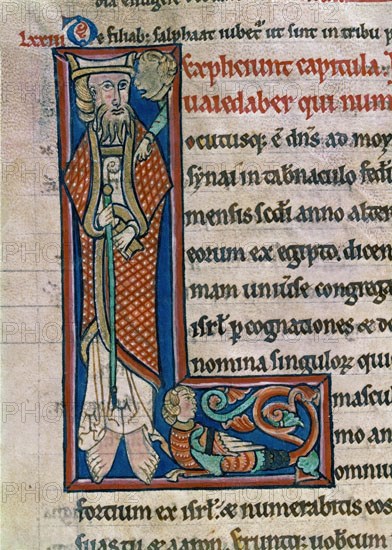 LXXIII De filiab; salphaat iubet̄ ut sint in tribu p
Expliciunt capitula.
uaiedaber qui num
Locutusq; ē dn̄s ad moy
synai in tab̄naculo fed
mensis scd̄i anno alter
eorum ex egipto, dicen
mam uniuīse congrega
isrl̄ p cognationes & do
nomina singulorꝝ qui
mascu
mo an
omniu
fortium ex isrl̄. & numerabitis eos
& aaron.